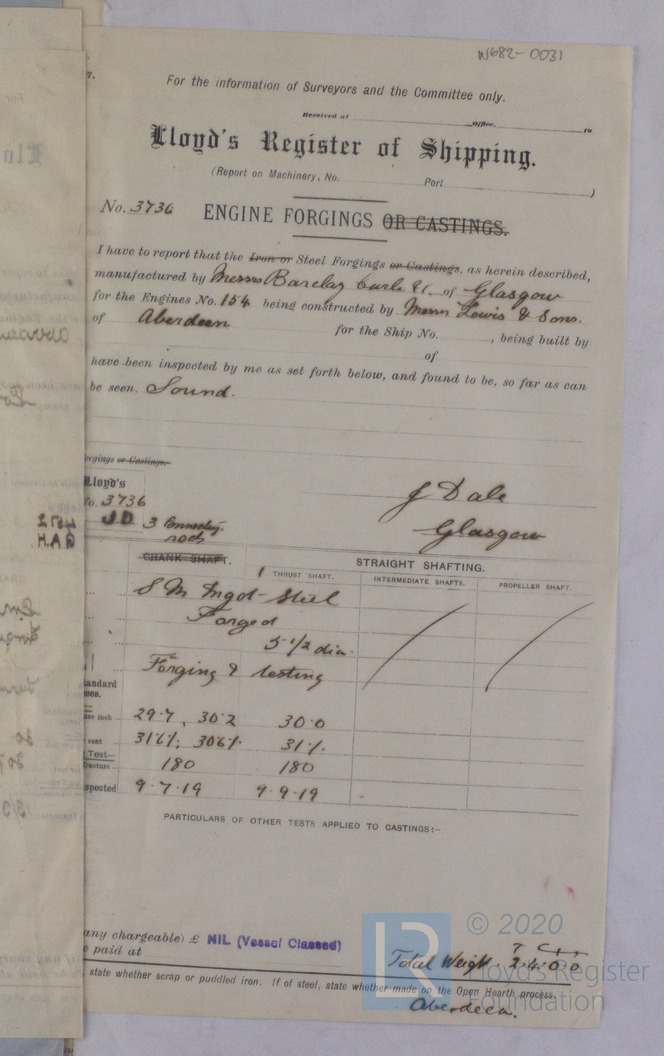 W682-0031
For the information of Surveyors and the Committee only.
Received at Office, 19
Lloyd's Register of Shipping.
(Report on Machinery, No. Port )
No. 3736 ENGINE FORGINGS OR CASTINGS.
I have to report that the Iron or Steel Forgings or Castings, as herein described,
manufactured by Messrs Barclay Curle & Co. of Glasgow
for the Engines No. 154 being constructed by Messrs Lewis & Sons.
of Aberdeen for the Ship No. , being built by
of
have been inspected by me as set forth below, and found to be, so far as can
be seen. Sound.
orgings or Castings.
Lloyd's
No. 3736
J.D 3 Connecting
rods
J Dale
Glasgow
CRANK SHAFT. 1 THRUST SHAFT. STRAIGHT SHAFTING.
INTERMEDIATE SHAFTS. PROPELLER SHAFT.
S M Ingot Steel
Forged
5 1/2 dia.
Forging & testing
tandard
29.7, 30.2 30.0
31.6%, 30.6% 31%
cent
Test—
fracture 180 180
spected 9.7.19 9.9.19
PARTICULARS OF OTHER TESTS APPLIED TO CASTINGS:—
any chargeable) £ NIL (Vessel Classed)
e paid at
Total Weight. 2.4.0.0
state whether scrap or puddled iron. If of steel, state whether made on the Open Hearth process.
Aberdeen.
© 2020
Lloyd's Register
Foundation